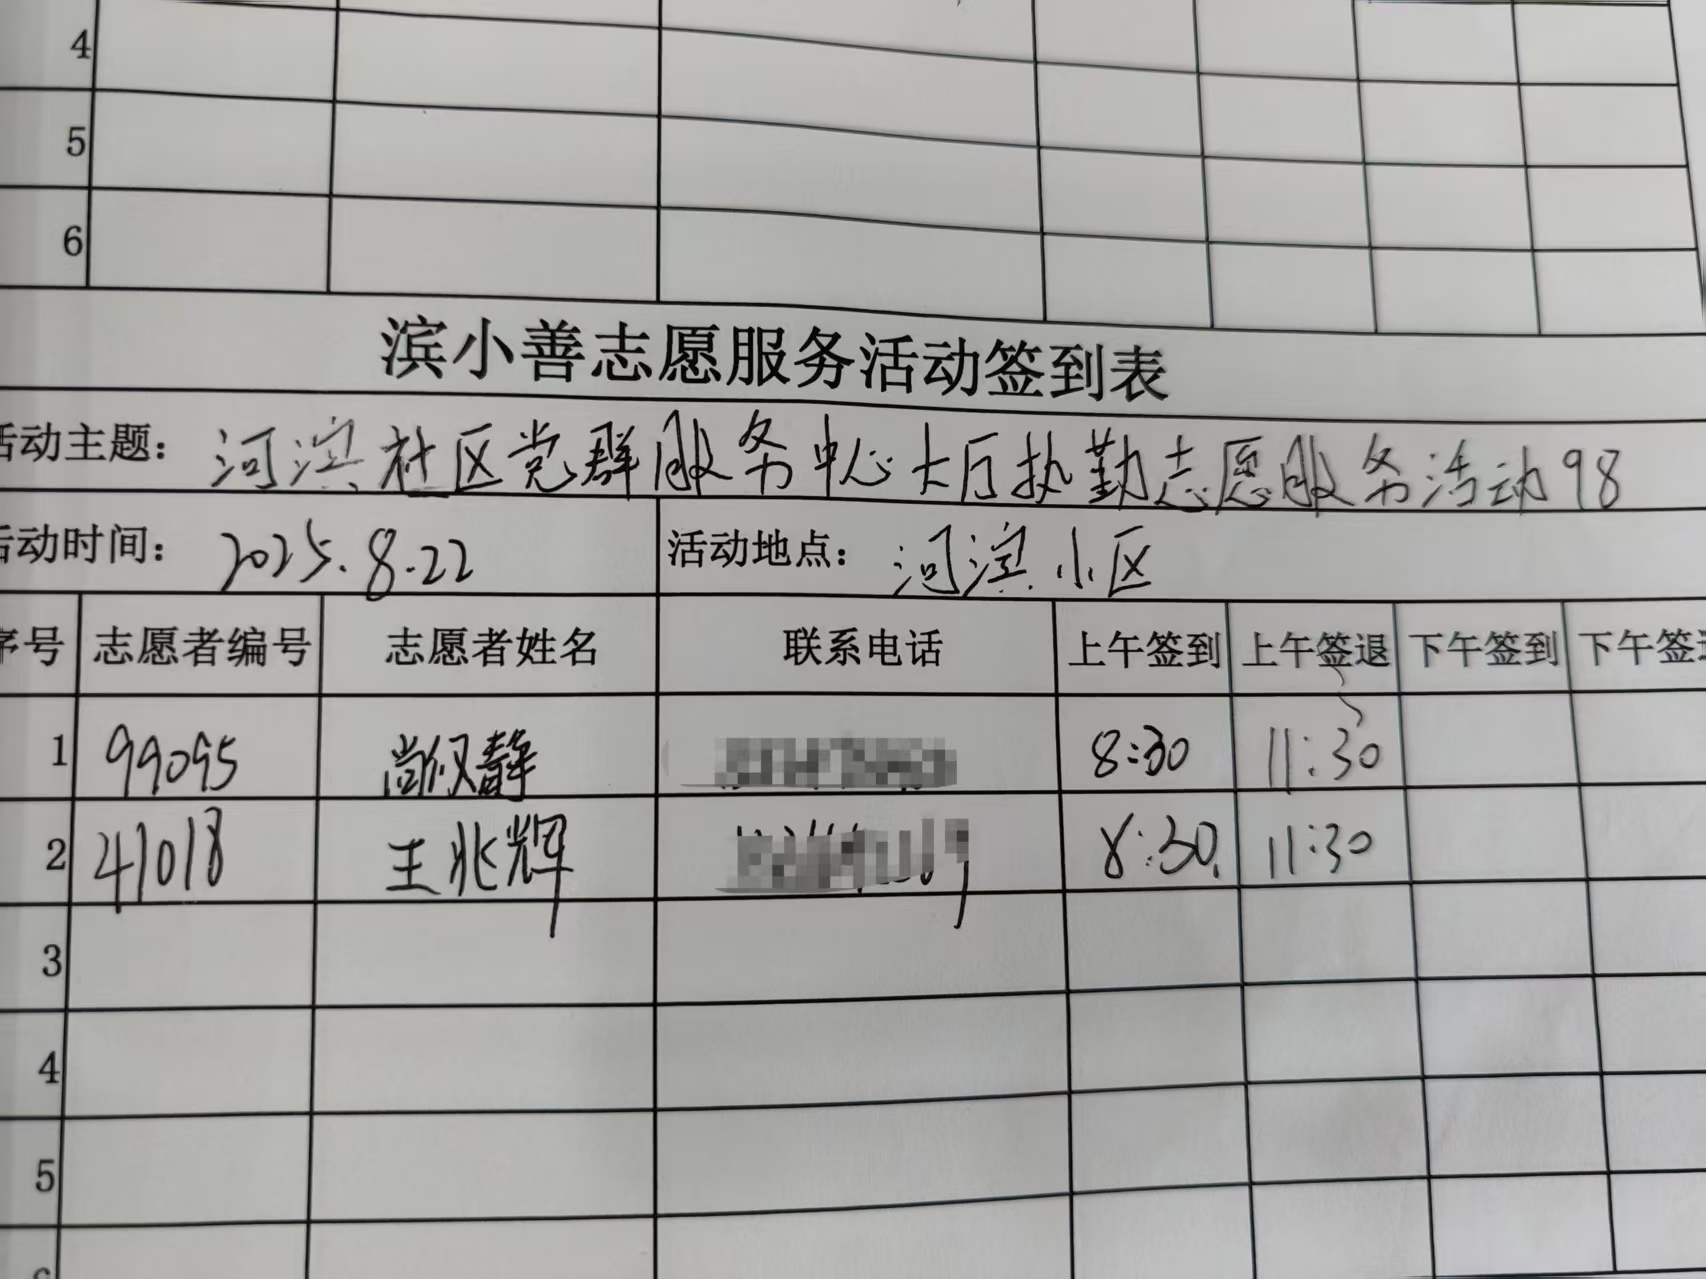 4
5
6
滨小善志愿服务活动签到表
活动主题：河滨社区党群服务中心大厅执勤志愿服务活动98
活动时间：2025.8.22 活动地点：河滨小区
序号 志愿者编号 志愿者姓名 联系电话 上午签到 上午签退 下午签到 下午签退
1 99095 尚仪静 8:30 11:30
2 41018 王兆辉 8:30 11:30
3
4
5
6